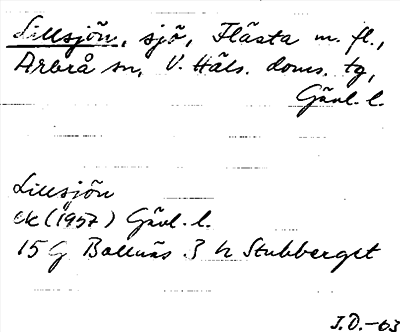 Lillsjön, sjö, Flästa m. fl.,
Arbrå sn, V. Häls. doms. tg,
Gävl. l.
Lillsjön
ek (1957) Gävl. l.
15 G Bollnäs 3 h Stubberget
J.D.-63